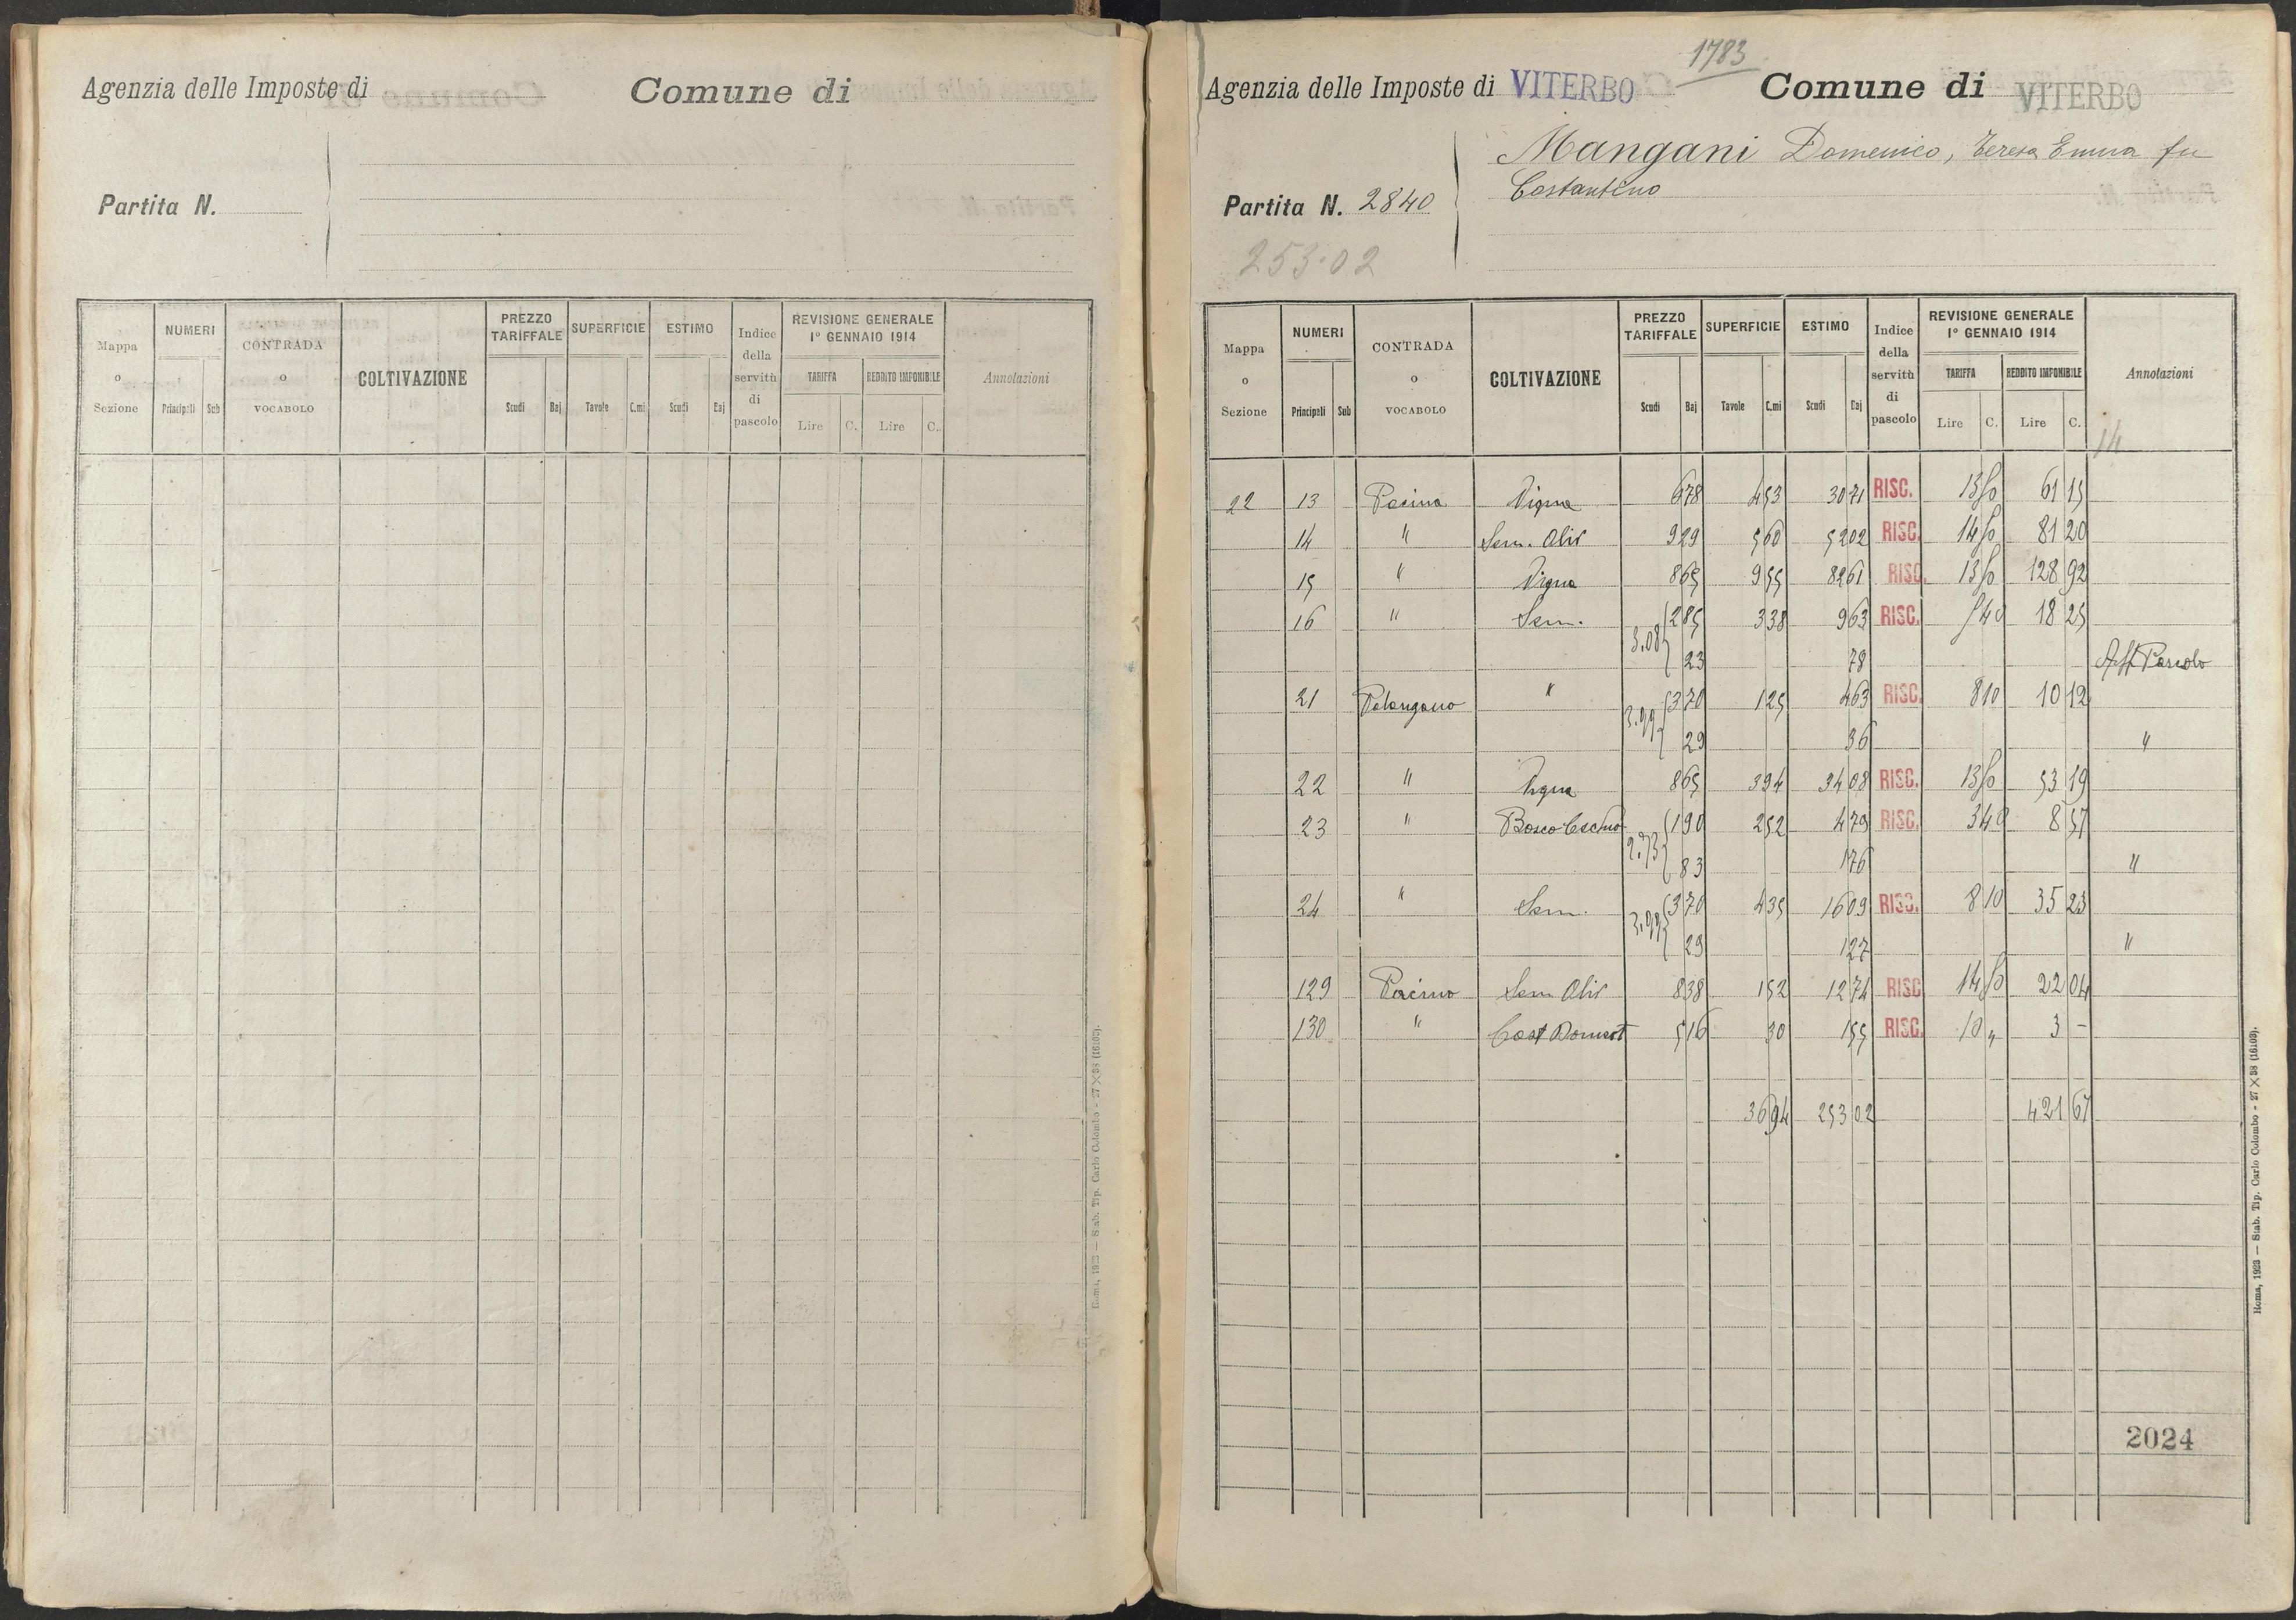 Agenzia delle Imposte di
Comune di
Partita N.
Mappa o Sezione
NUMERI
Principali Sub
CONTRADA o VOCABOLO
COLTIVAZIONE
PREZZO TARIFFALE
Scudi Baj
SUPERFICIE
Tavole C.mi
ESTIMO
Scudi Baj
Indice della servitù di pascolo
REVISIONE GENERALE 1° GENNAIO 1914
TARIFFA REDDITO IMPONIBILE
Lire C. Lire C.
Annotazioni
Roma, 1923 — Stab. Tip. Carlo Colombo - 27 X 38 (16102).
1783
Agenzia delle Imposte di VITERBO Comune di VITERBO
Mangani Domenico, Teresa Emma fu
Costantino
Partita N. 2840
253.02
Mappa o Sezione
NUMERI
Principali Sub
CONTRADA o VOCABOLO
COLTIVAZIONE
PREZZO TARIFFALE
Scudi Baj
SUPERFICIE
Tavole C.mi
ESTIMO
Scudi Baj
Indice della servitù di pascolo
REVISIONE GENERALE 1° GENNAIO 1914
TARIFFA REDDITO IMPONIBILE
Lire C. Lire C.
Annotazioni
14
22 13 Vigna 678 453 3071 RISC. 13 50 61 15
14 " Sem. Oliv 929 560 5202 RISC. 14 50 81 20
15 " Vigna 865 955 8261 RISC. 13 50 128 92
16 " Sem. 3.08 285 338 963 RISC. 5 40 18 25
23 78 Aff. Pascolo
21 " 3.99 370 125 463 RISC. 8 10 10 12
29 36 "
22 " Vigna 865 394 3408 RISC. 13 50 53 19
23 " Bosco 2.73 190 252 479 RISC. 3 40 8 57
83 176 "
24 " Sem. 3.99 370 435 1609 RISC. 8 10 35 23
29 127 "
129 Sem Oliv 838 152 1274 RISC. 14 50 22 04
130 " Cast Domest 516 30 155 RISC. 10 " 3 -
3694 253 02 421 67
2024
Roma, 1923 — Stab. Tip. Carlo Colombo - 27 X 38 (16102).